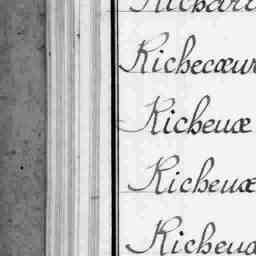 Richard
Richecœur
Richeux
Richeux
Richeux